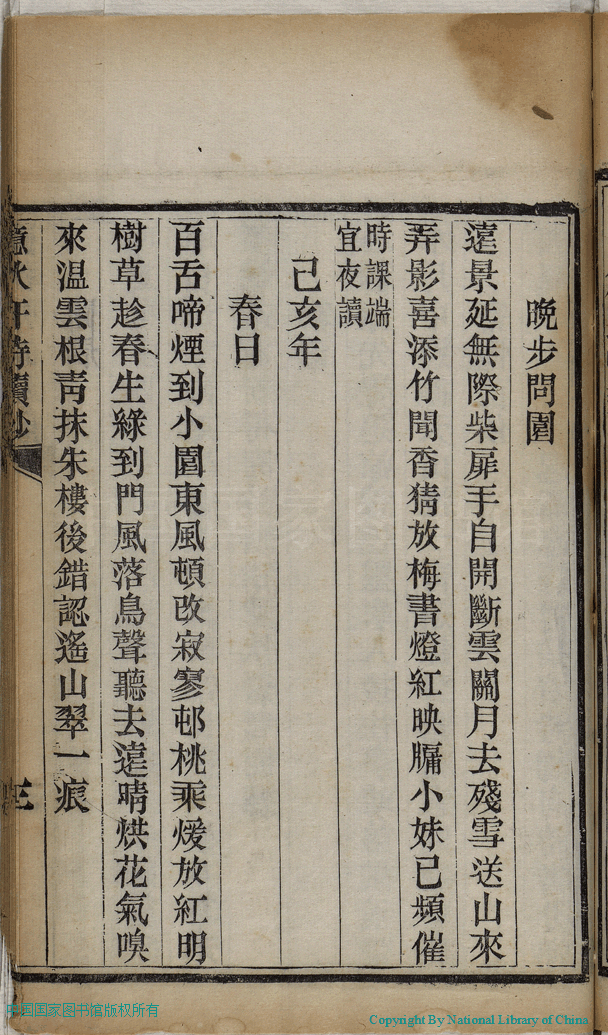 晩步問園
遠景延無際柴扉手自開斷雲關月去殘雪送山來
弄影喜添竹聞香猜放梅書燈紅映牖小妹已頻催
時課端
宜夜讀
己亥年
春日
百舌啼煙到小園東風頓改寂寥邨桃乘煖放紅明
樹草趁春生綠到門風落鳥聲聽去遠晴烘花氣嗅
來溫雲根靑抹朱樓後錯認遙山翠一痕
憶秋軒詩續鈔
三
中国国家图书馆版权所有
Copyright By National Library of China